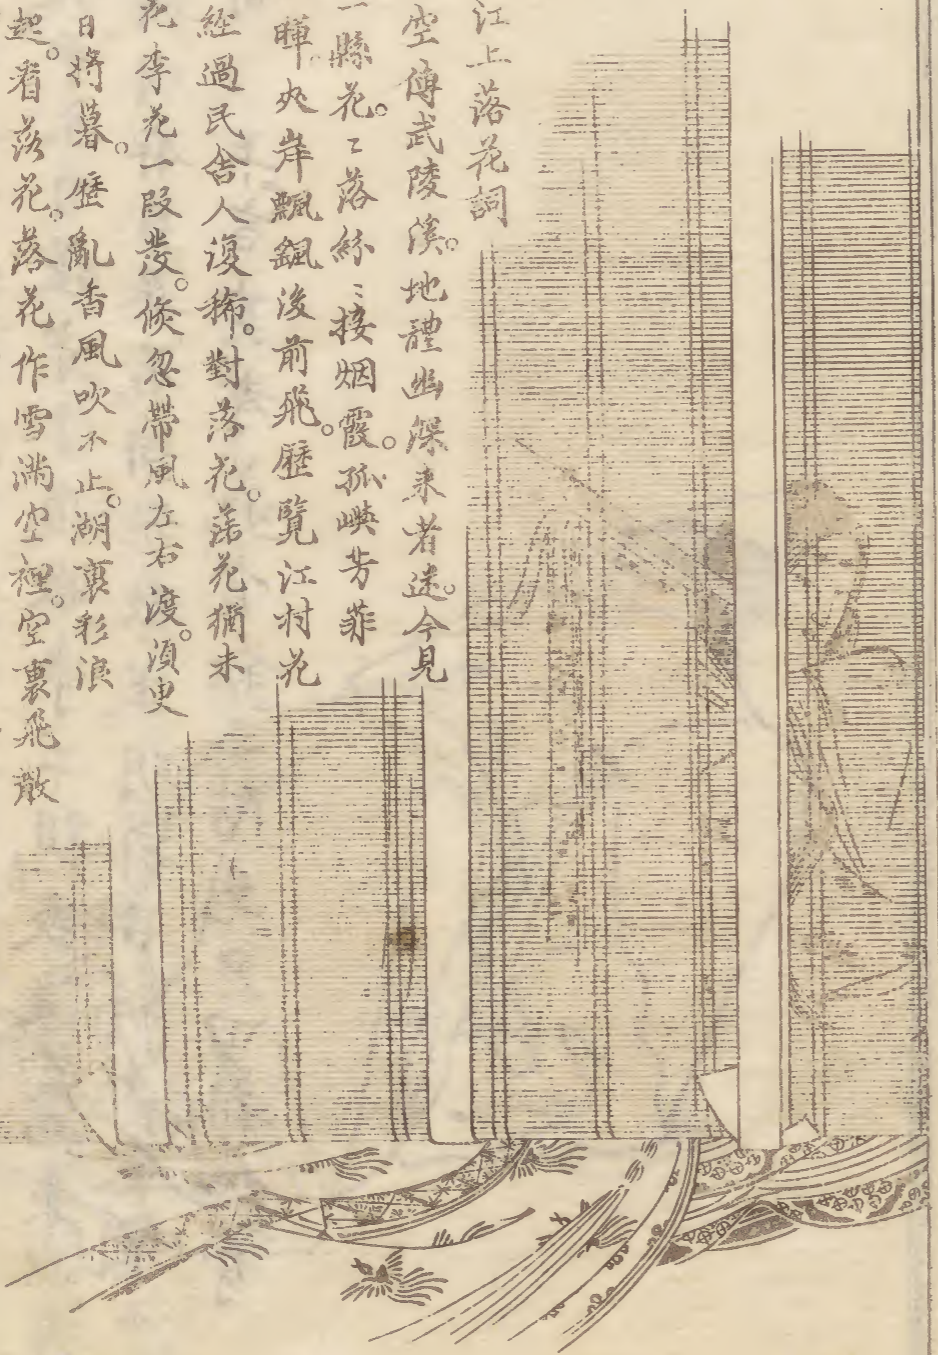 江上落花詞
空傳武陵溪。地體幽深来者迷。今見
一縣花。〻落紛〻接烟霞。孤嶼芳菲
暉。夾岸飄颻後前飛。歷覽江村花
經過民舍人復稀。對落花。落花猶未
花李花一段發。倐忽帶風左右渡。須臾
日將暮。歷亂香風吹不止。湖裏彩浪
起。看落花。落花作雪滿空裡。空裏飛散